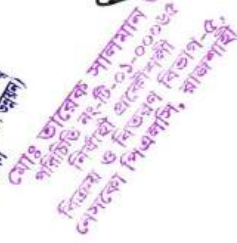 মোঃ তারেক সালমান
পরিচিতি নং-ডি-০১-০০০৬৫
নির্বাহী প্রকৌশলী
বিক্রয় ও বিতরণ বিভাগ-৫
নেসকো পিএলসি, রাজশাহী